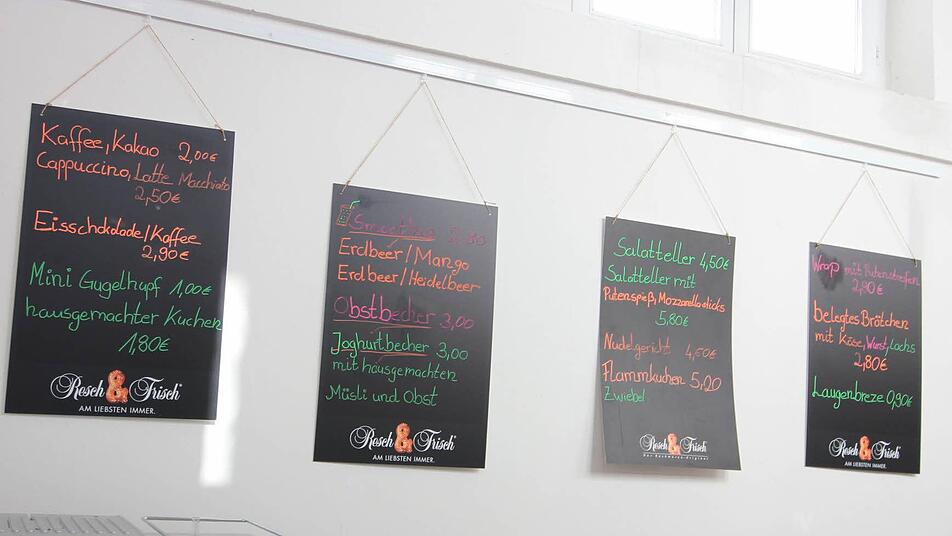 Kaffee, Kakao 2,00€
Cappuccino, Latte Macchiato
2,50€
Eisschokolade/Kaffee
2,90€
Mini Gugelhupf 1,00€
hausgemachter Kuchen
1,80€
Resch & Frisch
AM LIEBSTEN IMMER.
Smoothie 2,80
Erdbeer/Mango
Erdbeer/Heidelbeer
Obstbecher 3,00
Joghurtbecher 3,00
mit hausgemachten
Müsli und Obst
Resch & Frisch
AM LIEBSTEN IMMER.
Salatteller 4,50€
Salatteller mit
Putenspieß, Mozzarellasticks
5,80€
Nudelgericht
Flammkuchen 5,20
Zwiebel
Resch & Frisch
Das Backhaus-Original
Wrap mit Putenstreifen
2,90€
belegtes Brötchen
mit Käse, Wurst, Lachs
2,80€
Laugenbreze 0,90€
Resch & Frisch
AM LIEBSTEN IMMER.